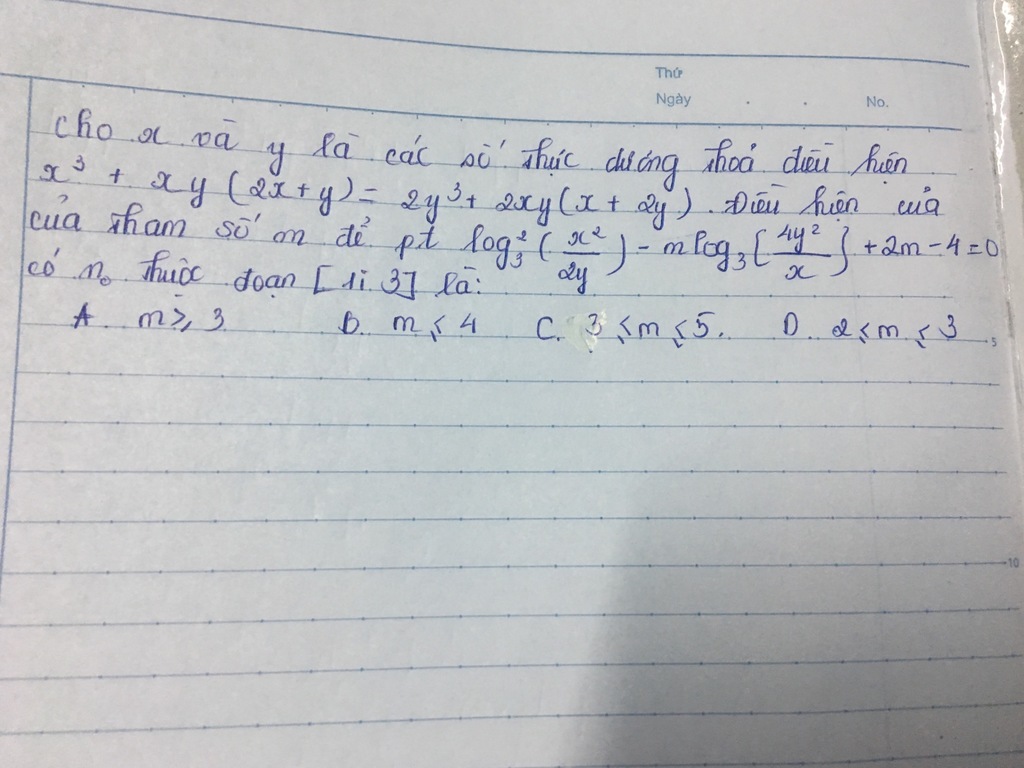 Thứ
Ngày . . No.
Cho x và y là các số thực dương thoả điều kiện
x³ + xy (2x+y) = 2y³ + 2xy(x + 2y). Điều kiện của
của tham số m để pt log₃² (x²/2y) - m log₃ [4y²/x] + 2m - 4 = 0
có n₀ thuộc đoạn [1; 3] là:
A. m ≥ 3 B. m ≤ 4 C. 3 ≤ m ≤ 5. D. 2 ≤ m ≤ 3
5
10